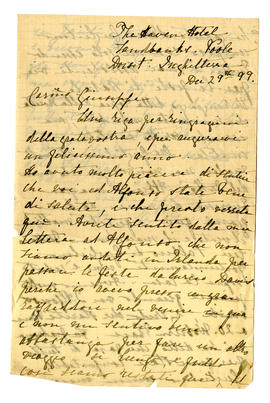 The Haven Hotel
Sandbanks. Poole
Dorset. Inghilterra
Dec 29th 99.
Carino Giuseppe
Una riga per ringraziarvi
della
un felicissimo anno
Ho avuto molto piacere di sentire
che voi ed Alfonso state bene
di salute, e che presto verrete
qui. Avrete sentito dalla mia
lettera ad Alfonso che non
siamo andati in Irlanda per
passare le feste
perché io avevo preso un gran
nel venire in qua
e non mi sentivo bene
abbastanza per fare un altro
viaggio di lungo, e freddo
così siamo